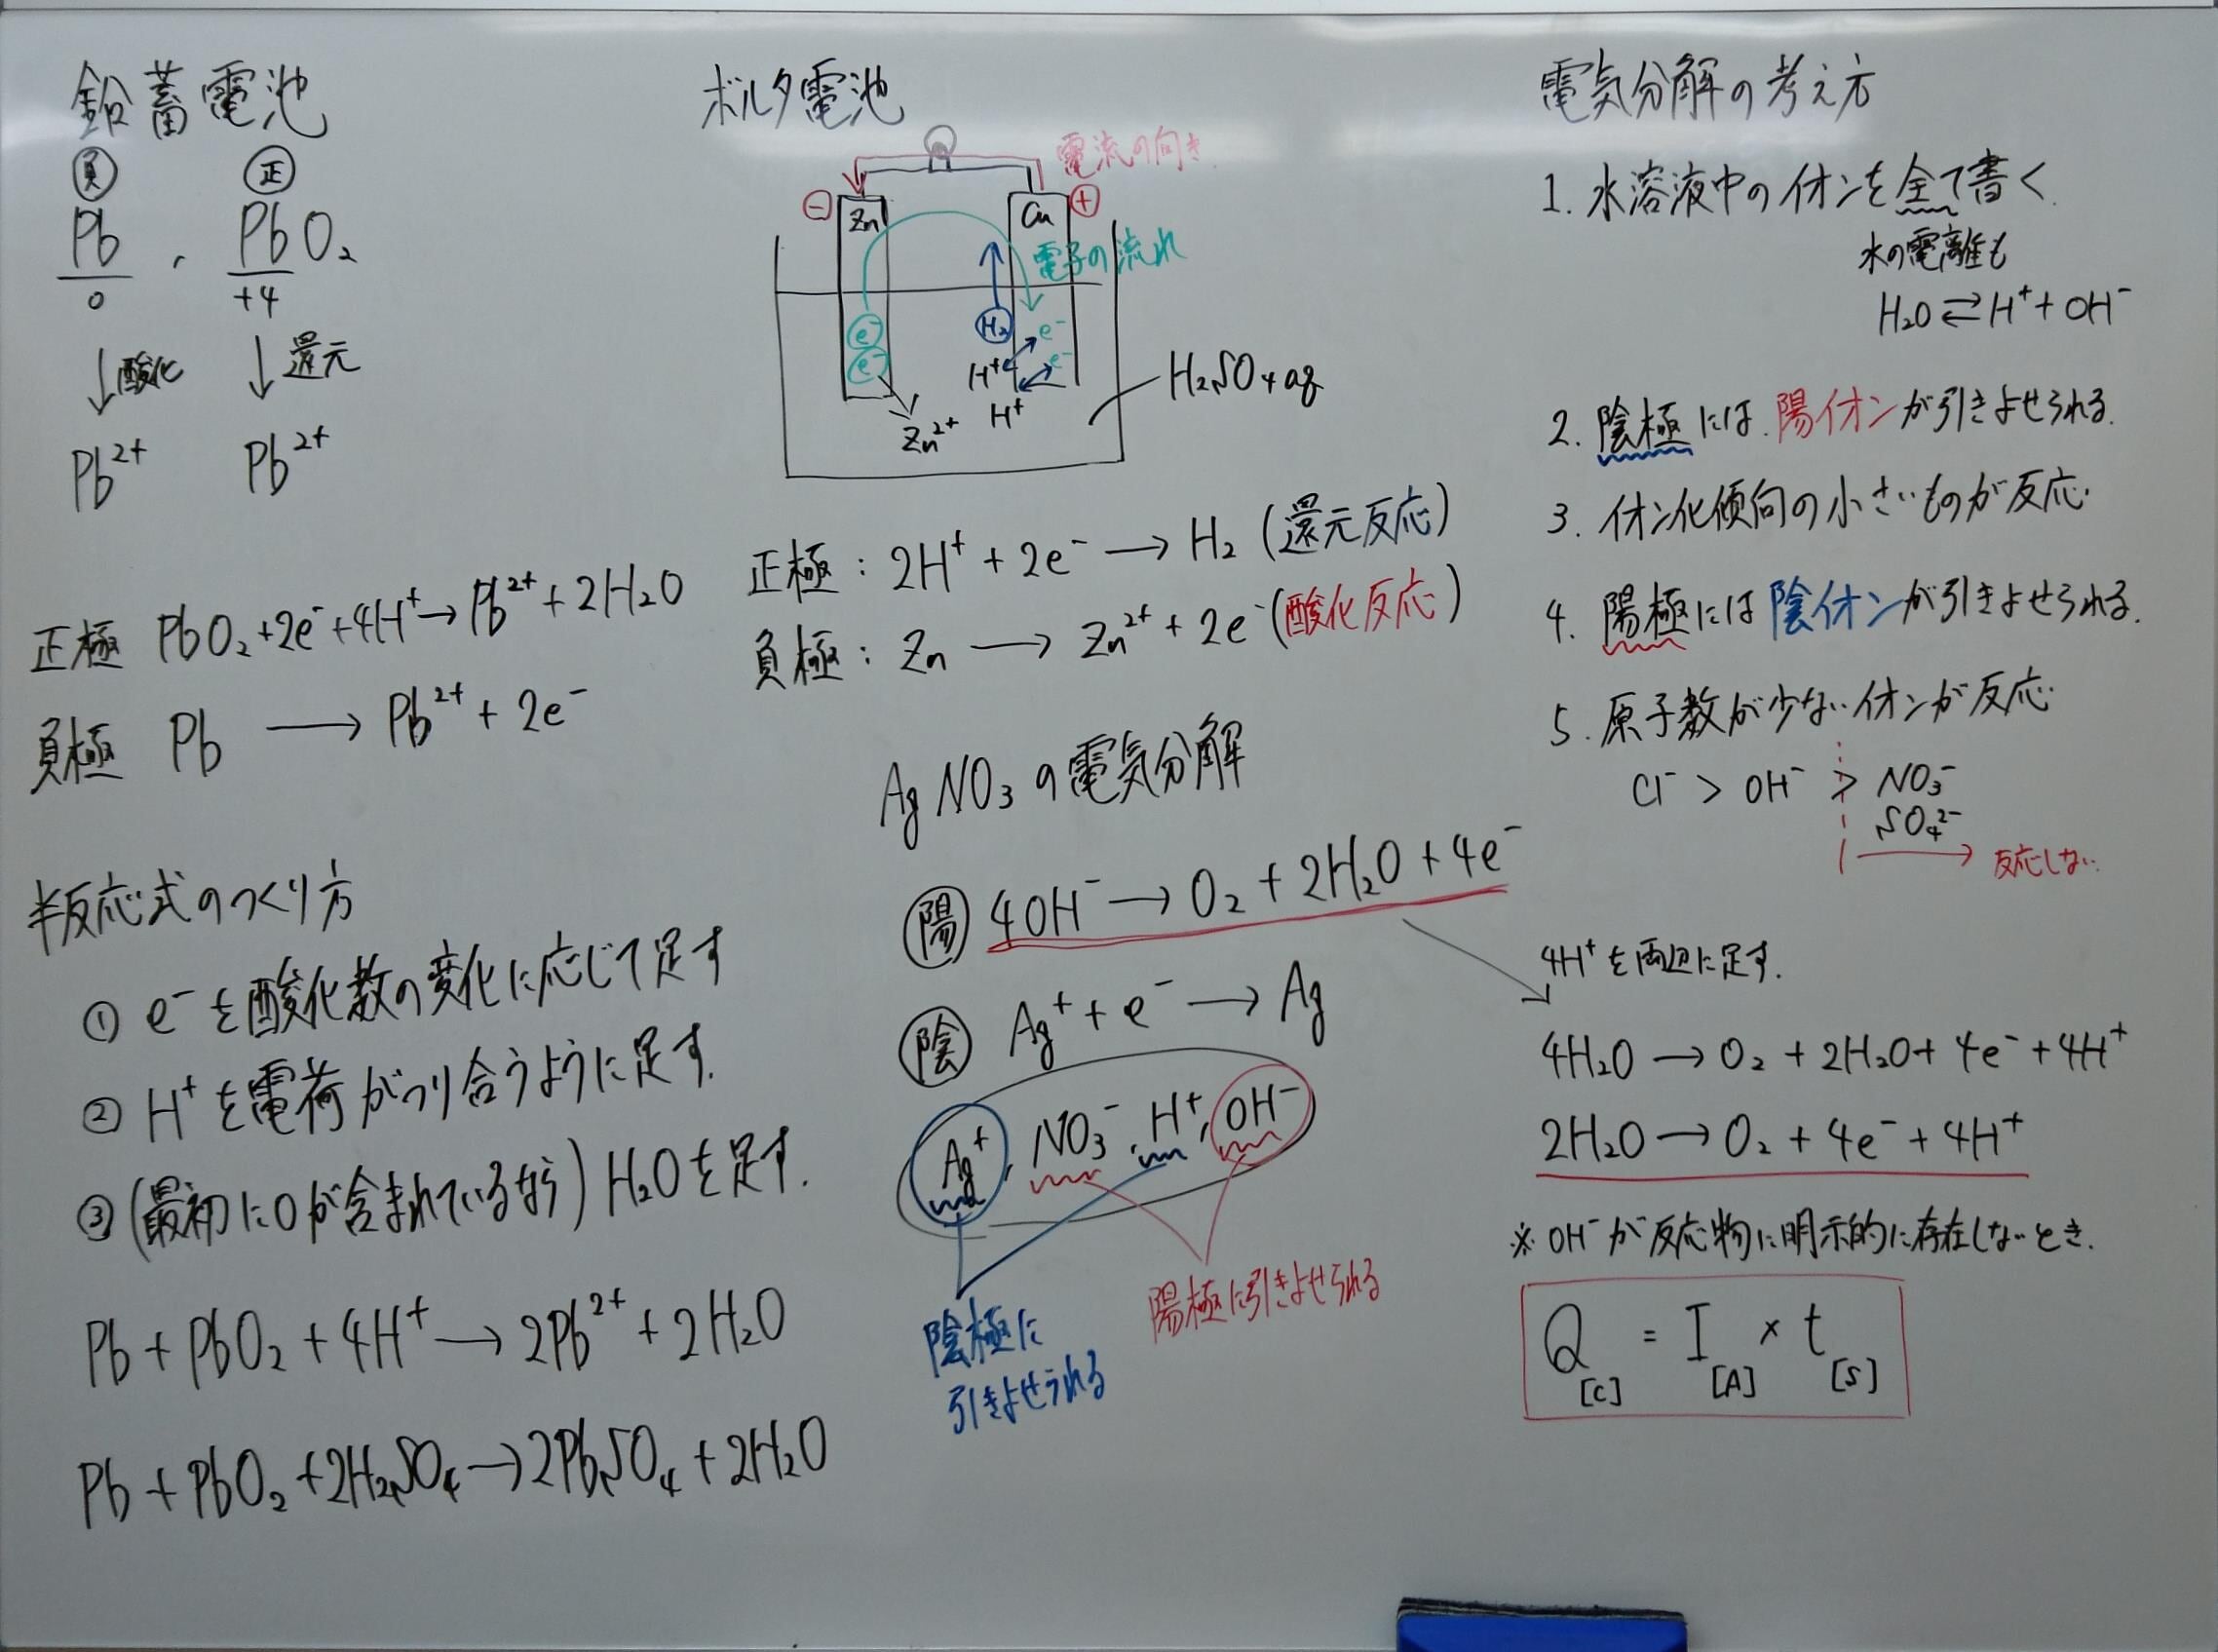 鉛蓄電池
負 正
Pb , PbO₂
0 +4
↓酸化 ↓還元
Pb²⁺ Pb²⁺
正極 PbO₂+2e⁻+4H⁺→Pb²⁺+2H₂O
負極 Pb → Pb²⁺+2e⁻
半反応式のつくり方
① e⁻を酸化数の変化に応じて足す
② H⁺を電荷がつり合うように足す.
③ (最初にOが含まれているなら) H₂Oを足す.
Pb+PbO₂+4H⁺→2Pb²⁺+2H₂O
Pb+PbO₂+2H₂SO₄→2PbSO₄+2H₂O
ボルタ電池
電流の向き
⊖ Zn Cu ⊕
電子の流れ
e⁻ H₂ e⁻
e⁻ H⁺ e⁻
Zn²⁺ H⁺
H₂SO₄aq
正極：2H⁺+2e⁻→H₂ (還元反応)
負極：Zn→Zn²⁺+2e⁻ (酸化反応)
AgNO₃の電気分解
陽 4OH⁻→O₂+2H₂O+4e⁻
陰 Ag⁺+e⁻→Ag
Ag⁺, NO₃⁻, H⁺, OH⁻
陰極に
引きよせられる
陽極に引きよせられる
電気分解の考え方
1. 水溶液中のイオンを全て書く.
水の電離も
H₂O⇄H⁺+OH⁻
2. 陰極には陽イオンが引きよせられる.
3. イオン化傾向の小さいものが反応.
4. 陽極には陰イオンが引きよせられる.
5. 原子数が少ないイオンが反応.
Cl⁻ > OH⁻ > NO₃⁻
SO₄²⁻
→ 反応しない.
4H⁺を両辺に足す.
4H₂O→O₂+2H₂O+4e⁻+4H⁺
2H₂O→O₂+4e⁻+4H⁺
※OH⁻が反応物に明示的に存在しないとき.
Q = I × t
[C] [A] [s]